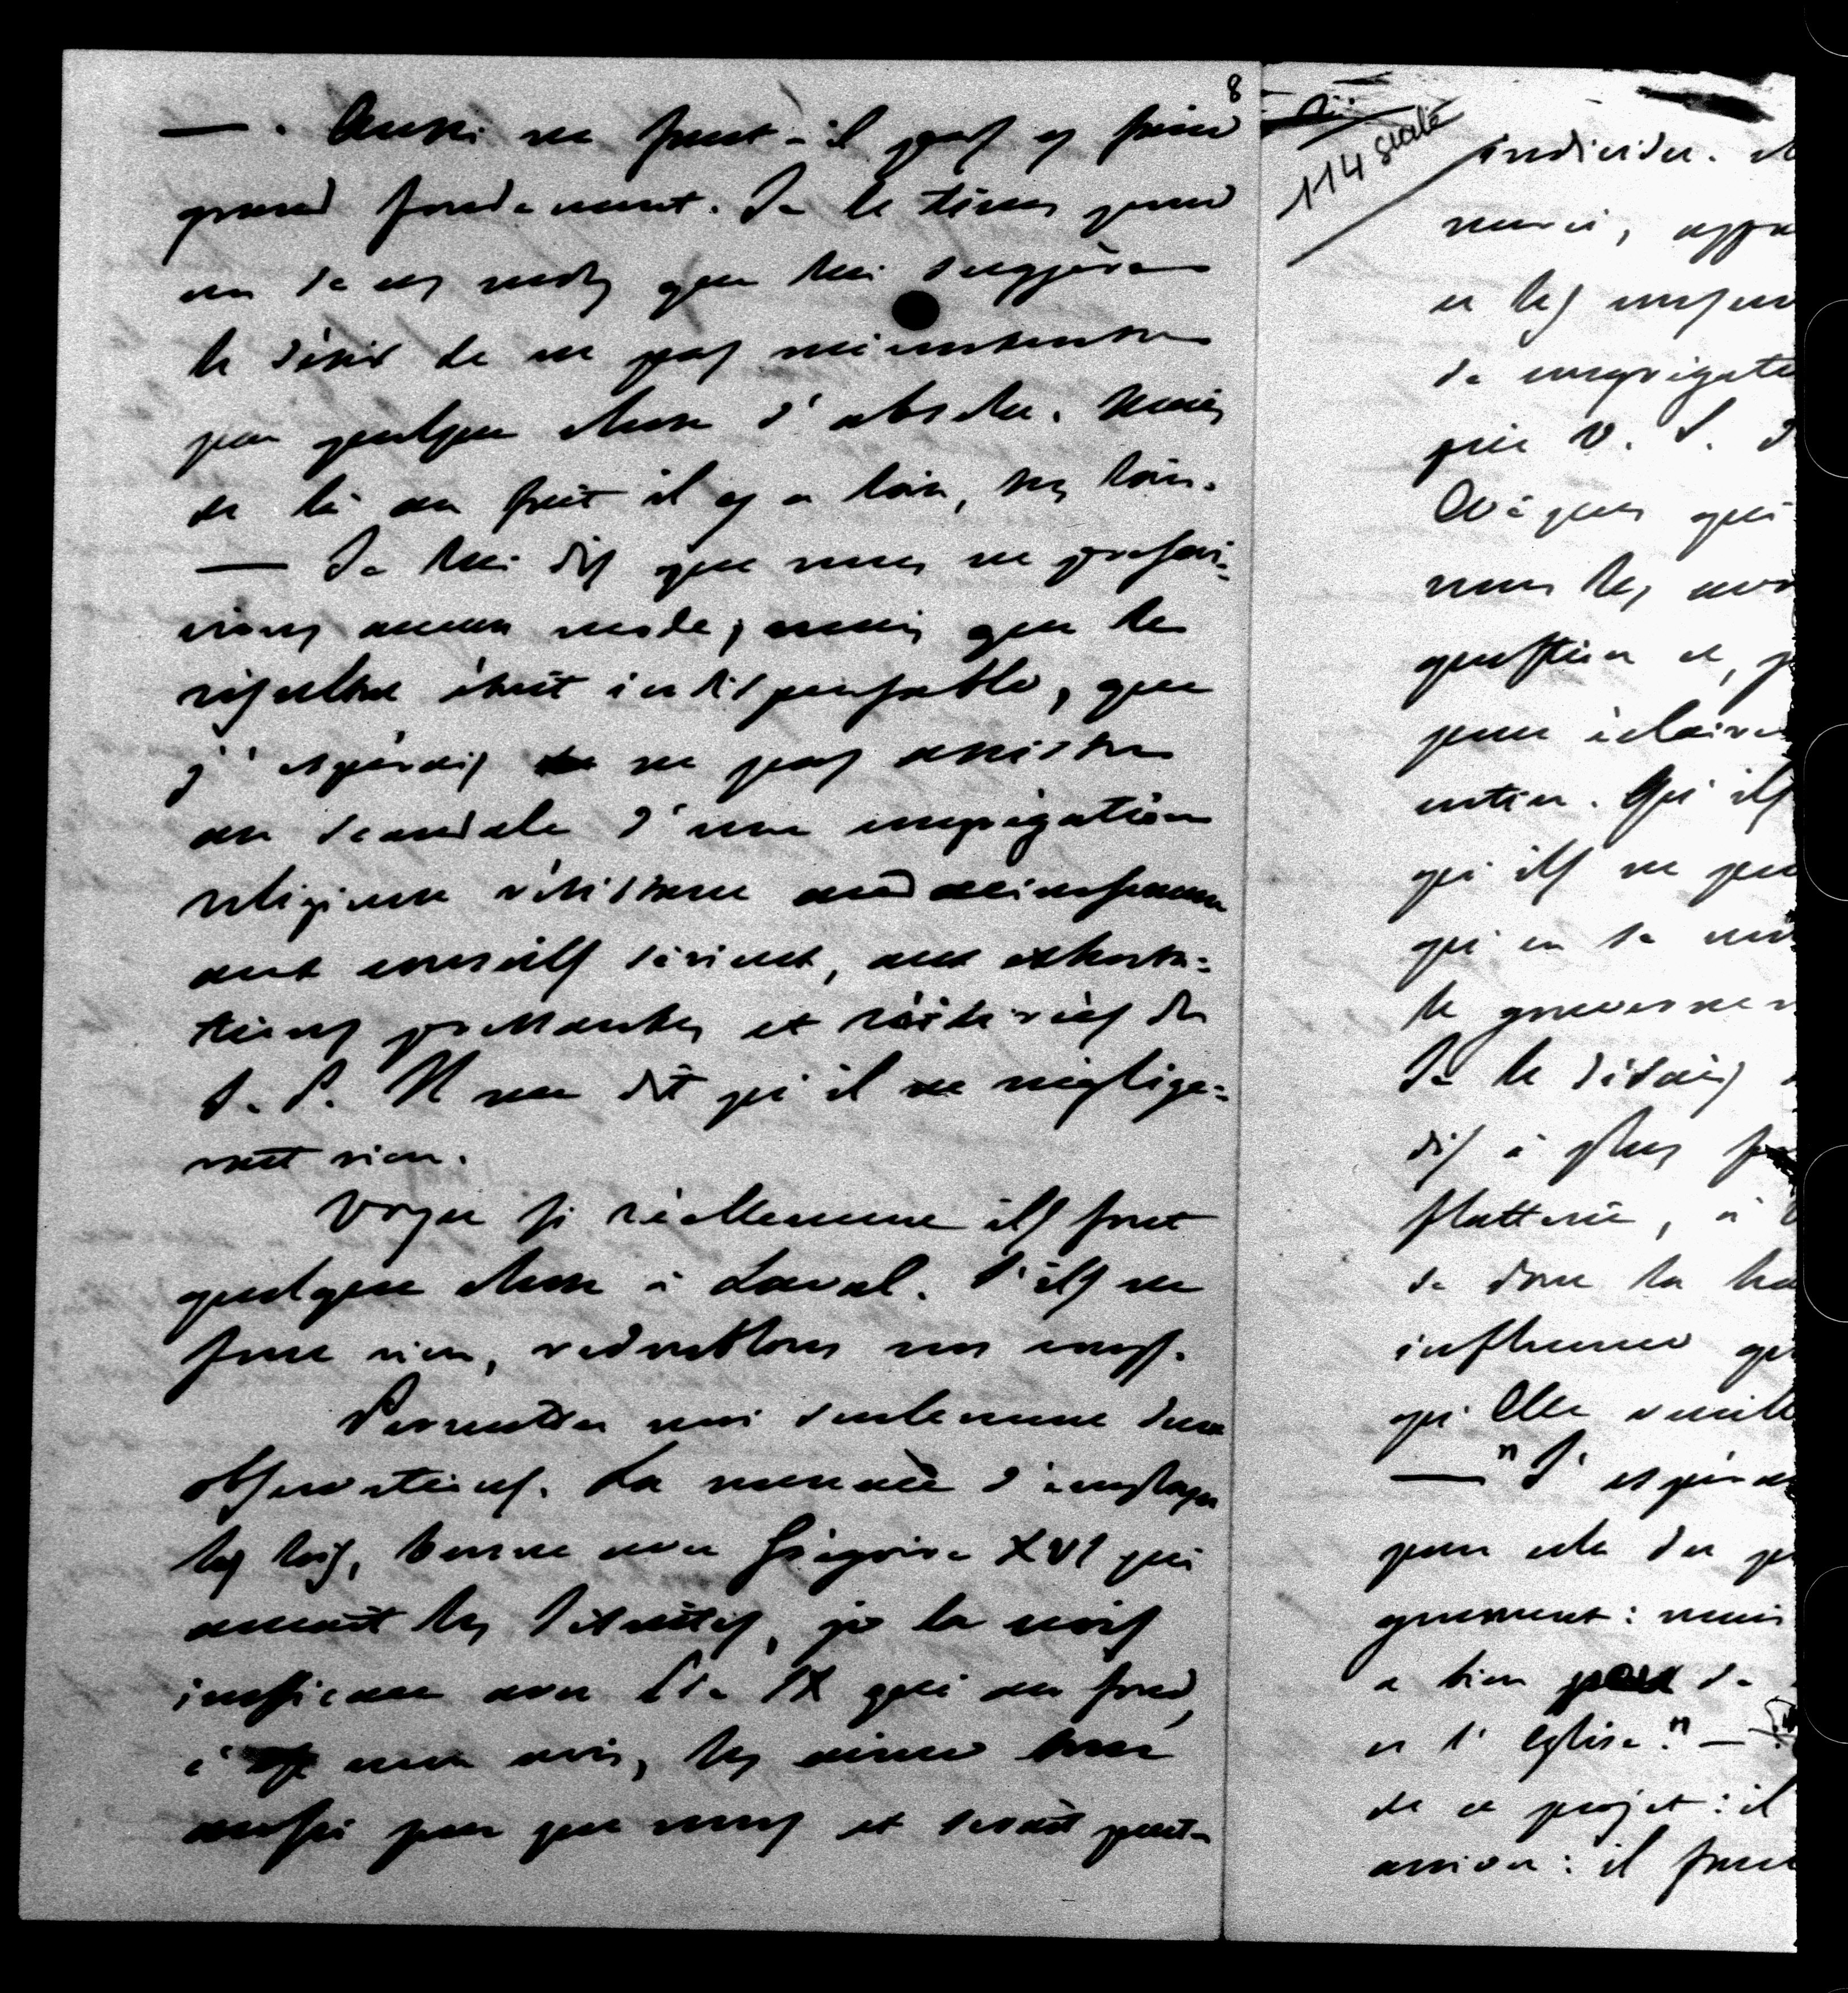 8
— . Aussi ne faut-il pas y faire
grand fondement. Je le tiens pour
un de ces mots que lui suggère
le désir de ne pas mécontenter
par quelque chose d'absolu. Mais
de là au fait il y a loin, très loin.
— Je lui dis que nous ne préfé-
rions aucun mode, mais que le
résultat était indispensable, que
j'espérais ne pas assister
au scandale d'une congrégation
religieuse résistant
aux conseils dévoués, aux exhorta-
tions pressantes et réitérées du
S. P. Il me dit qu'il ne néglige-
rait rien.
Voyez si réellement ils font
quelque chose à Laval. S'ils ne
font rien, redoublons nos coups.
Permettez moi seulement deux
observations. La menace d'employer
les lois, bonne avec Grégoire XVI qui
aimait les Jésuites, je la crois
inefficace avec Pie IX qui au fond,
à mon avis, les aime tout
aussi peu que nous et serait peut-
114 suite
individu. 
merci, 
et les 
de congrégati
pie V. S. 
Évêques qui
nous les avo
question et, p
pour éclaire
entier. Qu'ils
qu'ils ne peu
qu'on se 
le gouvernem
Je le disais
dis à plus 
flatterie, à
de dire la 
influence qu
qu'Elle veuille
— "J'espére
pour cela du p
gnement : mais
a bien peu de
et l'Eglise." —
de ce projet : il
arriver : il faut